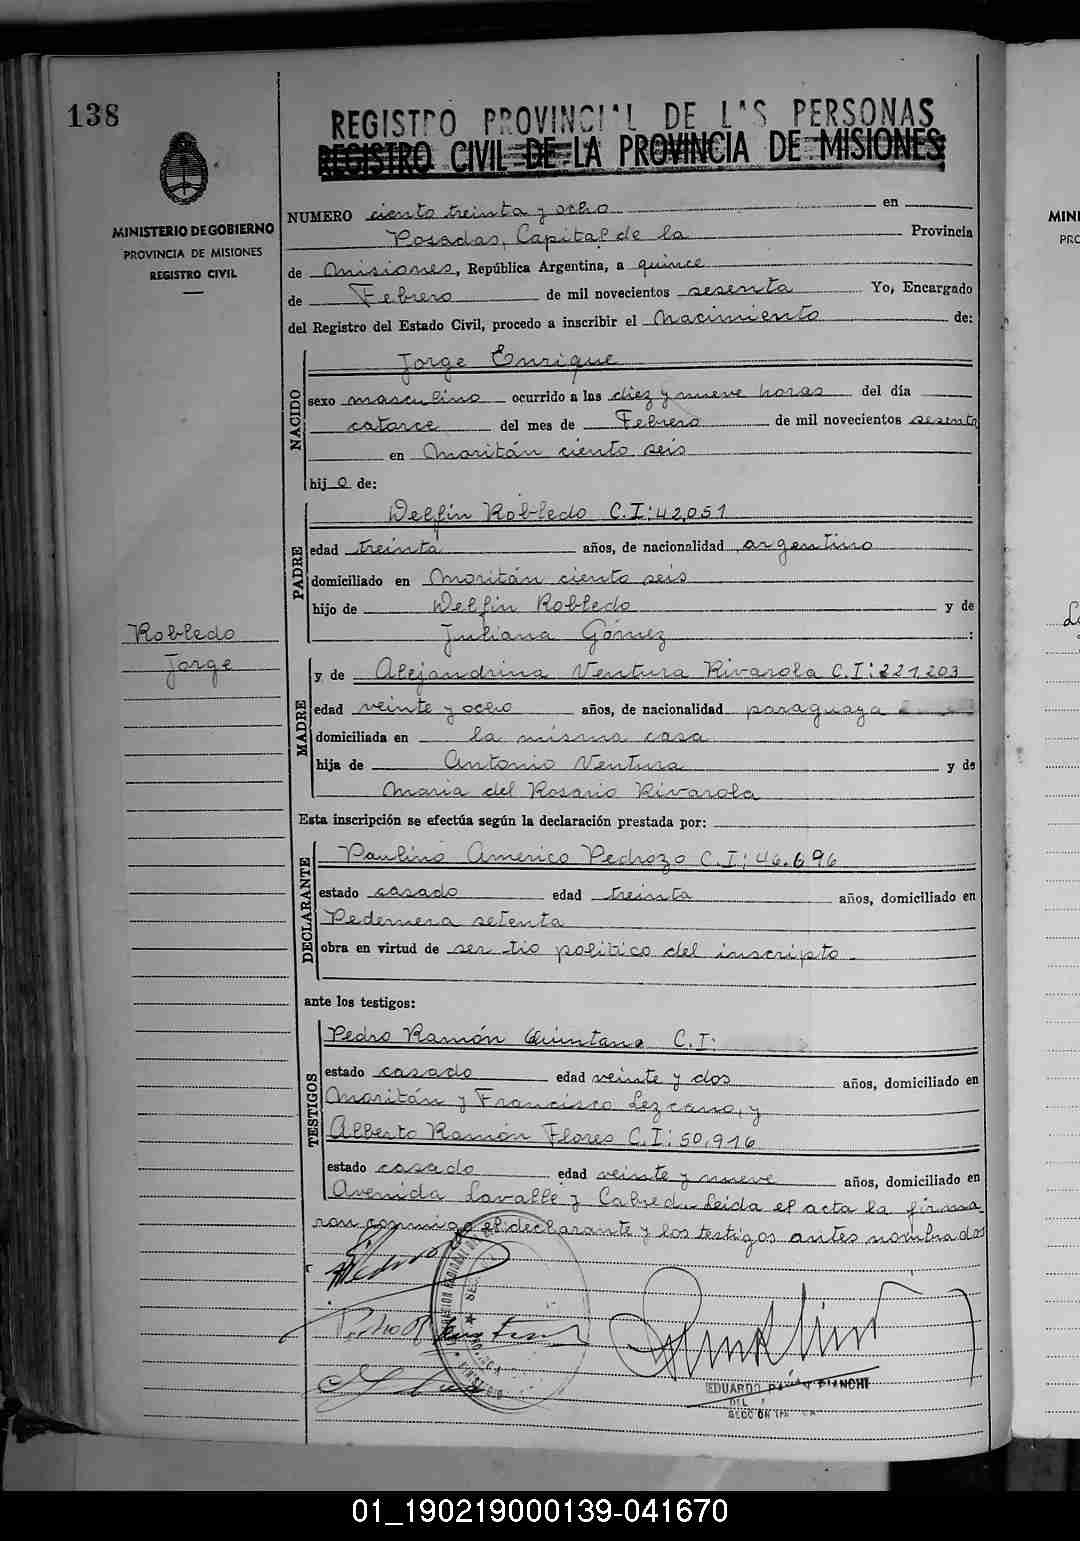 138
REGISTRO PROVINCIAL DE LAS PERSONAS
REGISTRO CIVIL DE LA PROVINCIA DE MISIONES
MINISTERIO DE GOBIERNO
PROVINCIA DE MISIONES
REGISTRO CIVIL
NUMERO ciento treinta y ocho en
Posadas, Capital de la Provincia
de Misiones, República Argentina, a quince
de Febrero de mil novecientos sesenta Yo, Encargado
del Registro del Estado Civil, procedo a inscribir el Nacimiento de:
NACIDO
Jorge Enrique
sexo masculino ocurrido a las diez y nueve horas del día
catorce del mes de Febrero de mil novecientos sesenta
en Moritán ciento seis
hijo de:
PADRE
Delfín Robledo C.I: 42,051
edad treinta años, de nacionalidad argentino
domiciliado en Moritán ciento seis
hijo de Delfin Robledo y de
Juliana Gómez :
Robledo
Jorge
MADRE
y de Alejandrina Ventura Rivarola C.I: 221,203
edad veinte y ocho años, de nacionalidad paraguaya
domiciliada en la misma casa
hija de Antonio Ventura y de
Maria del Rosario Rivarola
Esta inscripción se efectúa según la declaración prestada por:
DECLARANTE
Paulino Americo Pedrozo C.I: 46.696
estado casado edad treinta años, domiciliado en
Pedernera setenta
obra en virtud de ser tio politico del inscripto
ante los testigos:
TESTIGOS
Pedro Ramón Quintana C.I:
estado casado edad veinte y dos años, domiciliado en
Moritán y Francisco Lezcano, y
Alberto Ramón Flores C.I: 50,916
estado casado edad veinte y nueve años, domiciliado en
Avenida Lavalle y Cabred. Leida el acta la firma-
ron conmigo el declarante y los testigos antes nombrados
Pedro R.
EDUARDO RAMÓN BIANCHI
DEL
SECCION
01_190219000139-041670